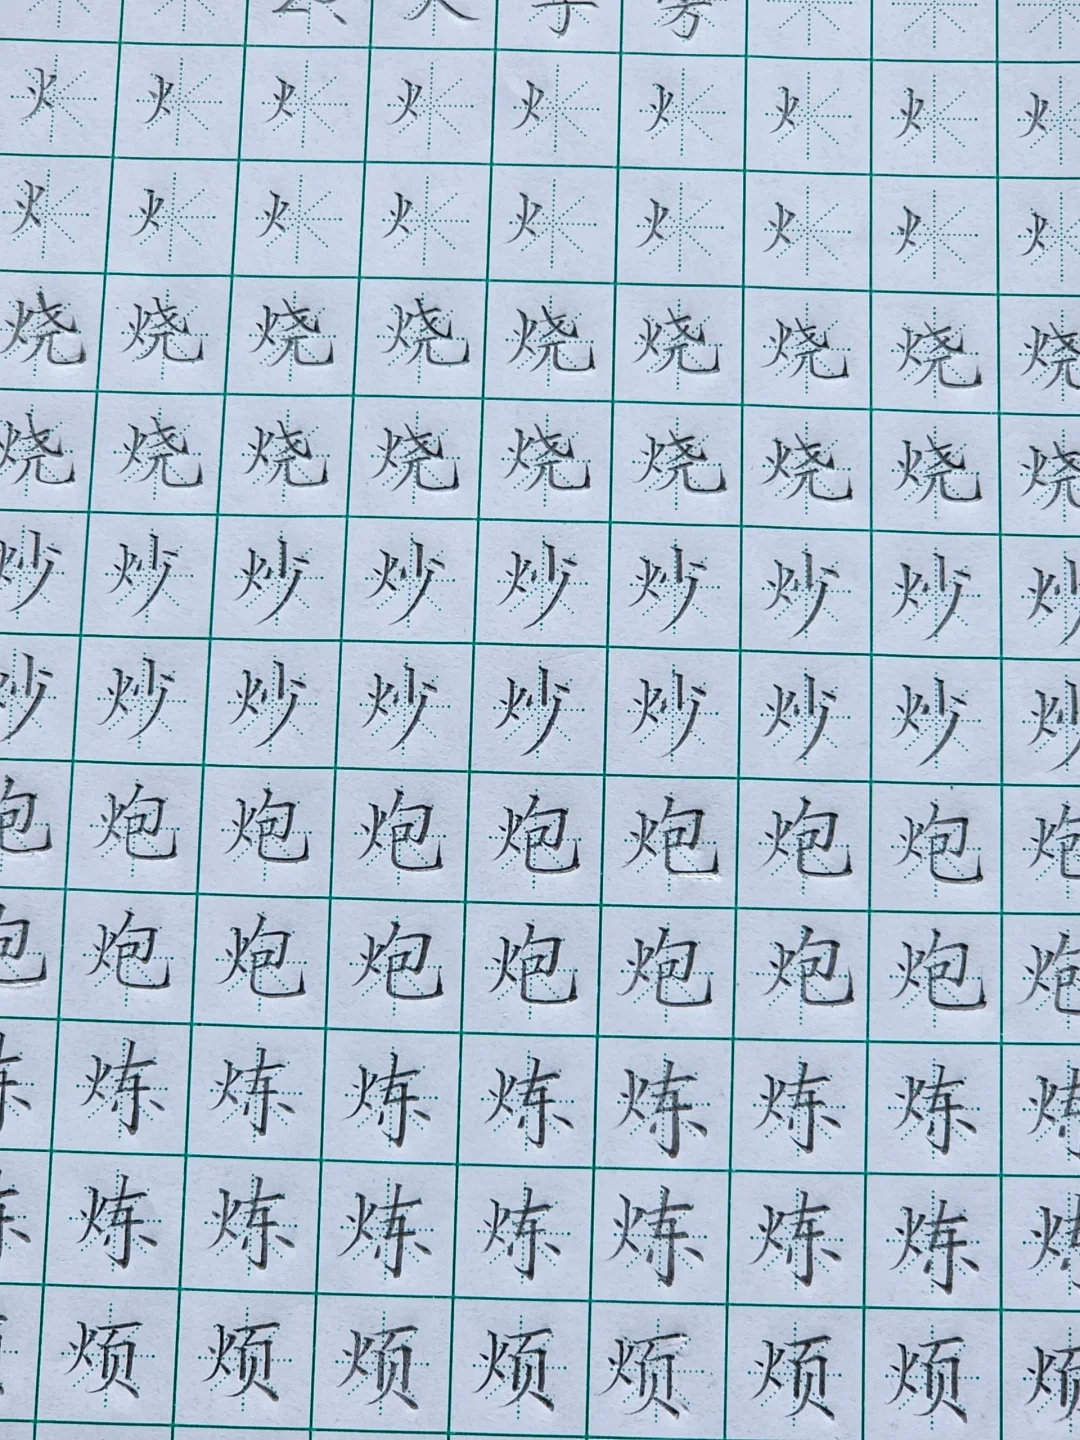 火 火 火 火 火 火 火 火 火
火 火 火 火 火 火 火 火 火
烧 烧 烧 烧 烧 烧 烧 烧 烧
烧 烧 烧 烧 烧 烧 烧 烧 烧
炒 炒 炒 炒 炒 炒 炒 炒 炒
炒 炒 炒 炒 炒 炒 炒 炒 炒
炮 炮 炮 炮 炮 炮 炮 炮 炮
炮 炮 炮 炮 炮 炮 炮 炮 炮
炼 炼 炼 炼 炼 炼 炼 炼 炼
炼 炼 炼 炼 炼 炼 炼 炼 炼
烦 烦 烦 烦 烦 烦 烦 烦